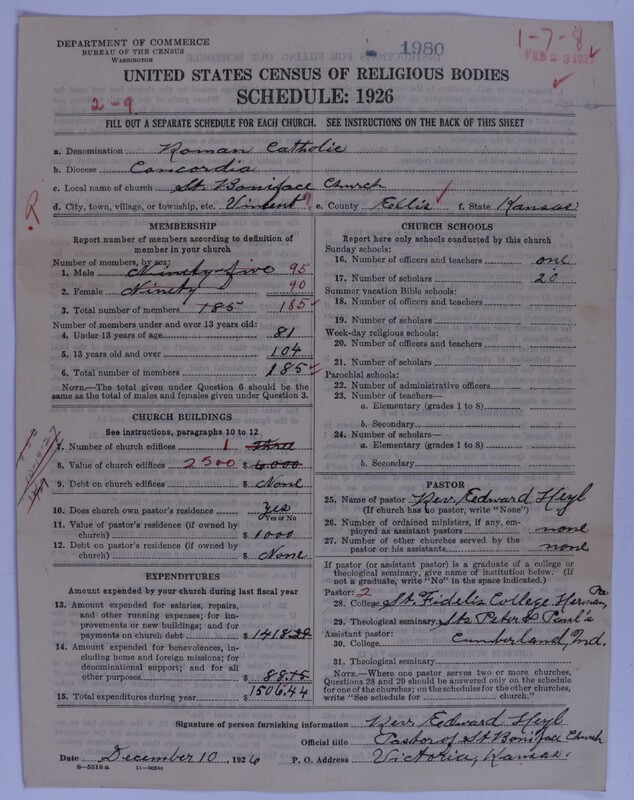 DEPARTMENT OF COMMERCE
BUREAU OF THE CENSUS
WASHINGTON
1980
1-7-8
UNITED STATES CENSUS OF RELIGIOUS BODIES
SCHEDULE: 1926
2-9
FILL OUT A SEPARATE SCHEDULE FOR EACH CHURCH. SEE INSTRUCTIONS ON THE BACK OF THIS SHEET
a. Denomination Roman Catholic
b. Diocese Concordia
c. Local name of church St. Boniface Church
d. City, town, village, or township, etc. Vincent e. County Ellis f. State Kansas
MEMBERSHIP
Report number of members according to definition of
member in your church
Number of members, by sex:
1. Male Ninety-five 95
2. Female Ninety 90
3. Total number of members 185 185
Number of members under and over 13 years old:
4. Under 13 years of age 81
5. 13 years old and over 104
6. Total number of members 185
NOTE.—The total given under Question 6 should be
same as the total of males and females given under Question 3.
CHURCH BUILDINGS
See instructions, paragraphs 10 to 12
7. Number of church edifices 1 Three
8. Value of church edifices 2500 $ 6000
9. Debt on church edifices $ None
10. Does church own pastor's residence Yes
Yes or No
11. Value of pastor's residence (if owned by
church) $ 1000
12. Debt on pastor's residence (if owned by
church) $ None
EXPENDITURES
Amount expended by your church during last fiscal year
13. Amount expended for salaries, repairs,
and other running expenses; for im-
provements or new buildings; and for
payments on church debt $ 1418.29
14. Amount expended for benevolences, in-
cluding home and foreign missions; for
denominational support; and for all
other purposes $ 88.15
15. Total expenditures during year $ 1506.44
CHURCH SCHOOLS
Report here only schools conducted by this church
Sunday schools:
16. Number of officers and teachers one
17. Number of scholars 20
Summer vacation Bible schools:
18. Number of officers and teachers
19. Number of scholars
Week-day religious schools:
20. Number of officers and teachers
21. Number of scholars
Parochial schools:
22. Number of administrative officers
23. Number of teachers—
a. Elementary (grades 1 to 8)
b. Secondary
24. Number of scholars—
a. Elementary (grades 1 to 8)
b. Secondary
PASTOR
25. Name of pastor Rev. Edward Heyl
(If church has no pastor, write "None")
26. Number of ordained ministers, if any, em-
ployed as assistant pastors none
27. Number of other churches served by the
pastor or his assistants none
If pastor (or assistant pastor) is a graduate of a college or
theological seminary, give name of institution below. (If
not a graduate, write "No" in the space indicated.)
Pastor: 2
28. College St. Fidelis College Herman, Pa
29. Theological seminary Sts. Peter & Paul's
Assistant pastor: Cumberland, Md.
30. College
31. Theological seminary
NOTE.—Where one pastor serves two or more churches,
Questions 28 and 29 should be answered only on the schedule
for one of the churches; on the schedules for the other churches,
write "See schedule for church."
Signature of person furnishing information Rev. Edward Heyl
Official title Pastor of St. Boniface Church
Date December 10, 1926 P. O. Address Victoria, Kansas.
8—5318a